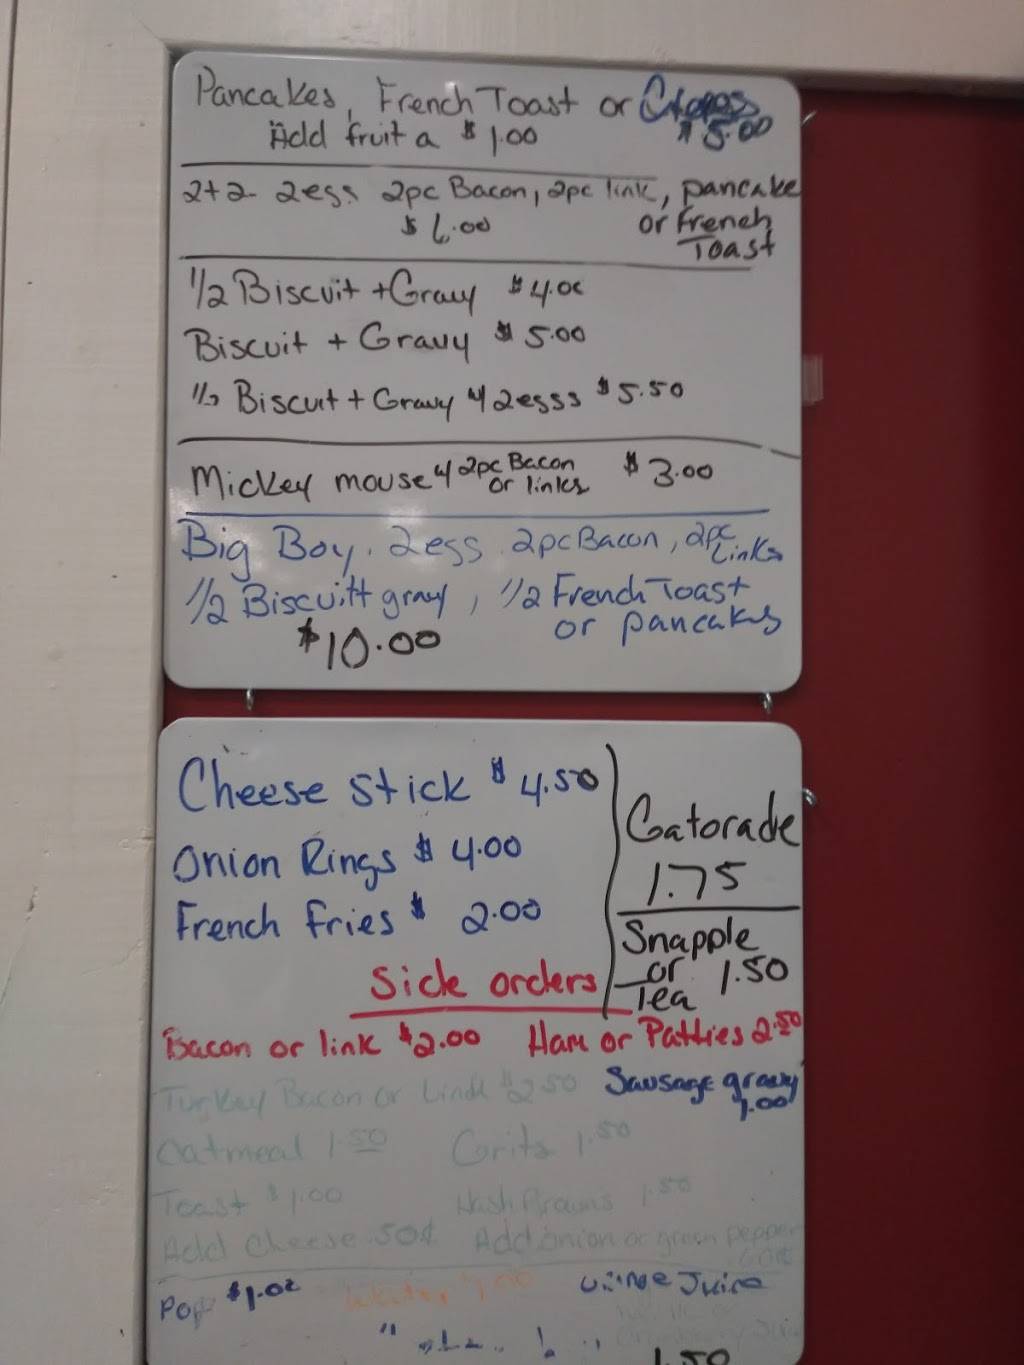 Pancakes, French Toast or Crepes
Add fruit a $1.00 $5.00
2+2 2egg 2pc Bacon, 2pc link, pancake
$6.00 or French
Toast
1/2 Biscuit + Gravy $4.00
Biscuit + Gravy $5.00
1/2 Biscuit + Gravy w/ 2eggs $5.50
Mickey mouse w/ 2pc Bacon $3.00
or links
Big Boy. 2egg 2pc Bacon, 2pc
Links
1/2 Biscuit + gravy, 1/2 French Toast
or pancakes
$10.00
Cheese Stick $4.50
Onion Rings $4.00
French Fries $2.00
Gatorade
1.75
Snapple
or 1.50
Tea
Side orders
Bacon or link $2.00 Ham or Patties 2.50
Turkey Bacon or Link $2.50 Sausage gravy
1.00
Oatmeal 1.50 Grits 1.50
Toast $1.00 Hash Browns 1.50
Add Cheese .50¢ Add onion or green pepper
Pop $1.00 Orange Juice
1.50